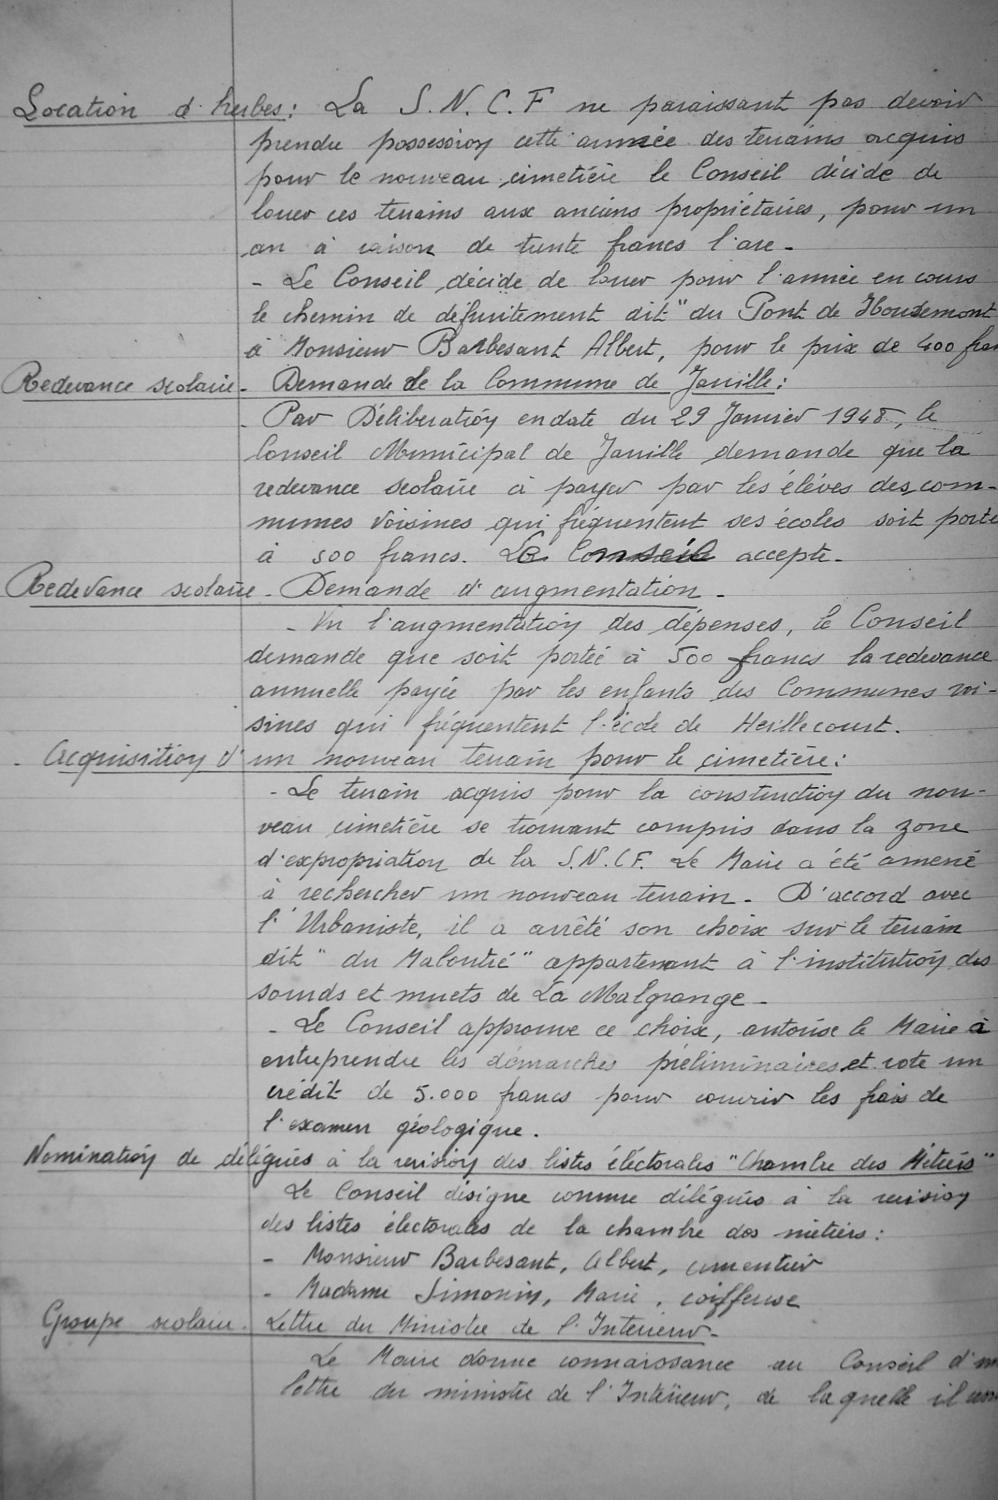 Location d'herbes : La S.N.C.F ne paraissant pas devoir
prendre possession cette année des terrains acquis
pour le nouveau cimetière le Conseil décide de
louer ces terrains aux anciens propriétaires, pour un
an à raison de trente francs l'are -
- Le Conseil décide de louer pour l'année en cours
le chemin de défruitement dit "du Pont de Houdemont
à Monsieur Barbesant Albert, pour le prix de 400 fran
Redevance scolaire - Demande de la Commune de Jarville :
- Par Délibération en date du 29 Janvier 1948, le
Conseil Municipal de Jarville demande que la
redevance scolaire à payer par les élèves des com-
munes voisines qui fréquentent ses écoles soit porté
à 500 francs. Le Conseil accepte -
Redevance scolaire - Demande d'augmentation -
- Vu l'augmentation des dépenses, le Conseil
demande que soit portée à 500 francs la redevance
annuelle payée par les enfants des Communes voi-
sines qui fréquentent l'école de Heillecourt.
- Acquisition d'un nouveau terrain pour le cimetière :
- Le terrain acquis pour la construction du nou-
veau cimetière se trouvant compris dans la zone
d'expropriation de la S.N.C.F. Le Maire a été amené
à rechercher un nouveau terrain - D'accord avec
l'Urbaniste, il a arrêté son choix sur le terrain
dit "du Maloutré" appartenant à l'institution des
sourds et muets de La Malgrange -
- Le Conseil approuve ce choix, autorise le Maire à
entreprendre les démarches préliminaires et vote un
crédit de 5.000 francs pour couvrir les frais de
l'examen géologique.
Nomination de délégués à la revision des listes électorales "Chambre des Métiers"
Le Conseil désigne comme délégués à la revision
des listes électorales de la chambre des métiers :
- Monsieur Barbesant, Albert, cimentier
- Madame Simonin, Marie, coiffeuse
Groupe scolaire - Lettre du Ministre de l'Interieur -
Le Maire donne connaissance au Conseil d'un
lettre du ministre de l'Intérieur, de laquelle il